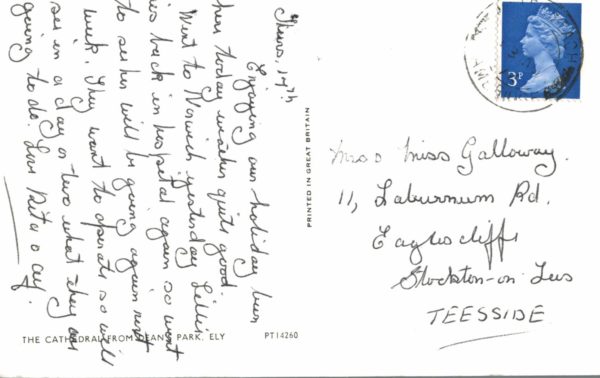 Thurs, 17th
Enjoying our holiday
here today weather quite good.
Went to Norwich yesterday
is back in hospital again so went
to see her will be going again next
week. They want to operate so will
see in a day or two what they are
going to do. Love Rita
THE CATHEDRAL FROM DEAN'S PARK, ELY
PT14260
PRINTED IN GREAT BRITAIN
3P
Miss Galloway.
11, Laburnum Rd.
Eaglescliffe
Stockton-on Tees
TEESSIDE